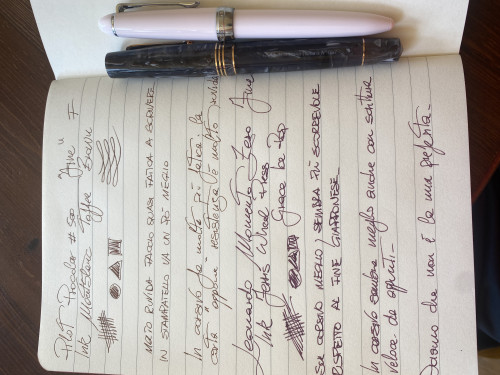 Pilot Procolor # 50 "Fine" F
Ink Montblanc Toffee Brown
MOLTO RUVIDA FACCIO QUASI FATICA A SCRIVERE
IN STAMPATELLO VA UN PÒ MEGLIO
In corsivo fa molta più fatica, la
carta oppone resistenza è molto ruvida
Leonardo Momento Zero Fine
Ink
Grace
SUL CORSIVO MEGLIO, SEMBRA PIÙ SCORREVOLE
RISPETTO AL FINE GIAPPONESE
In corsivo sembra meglio anche con scrittura
veloce da appunti -
Diciamo che non è la mia preferita -